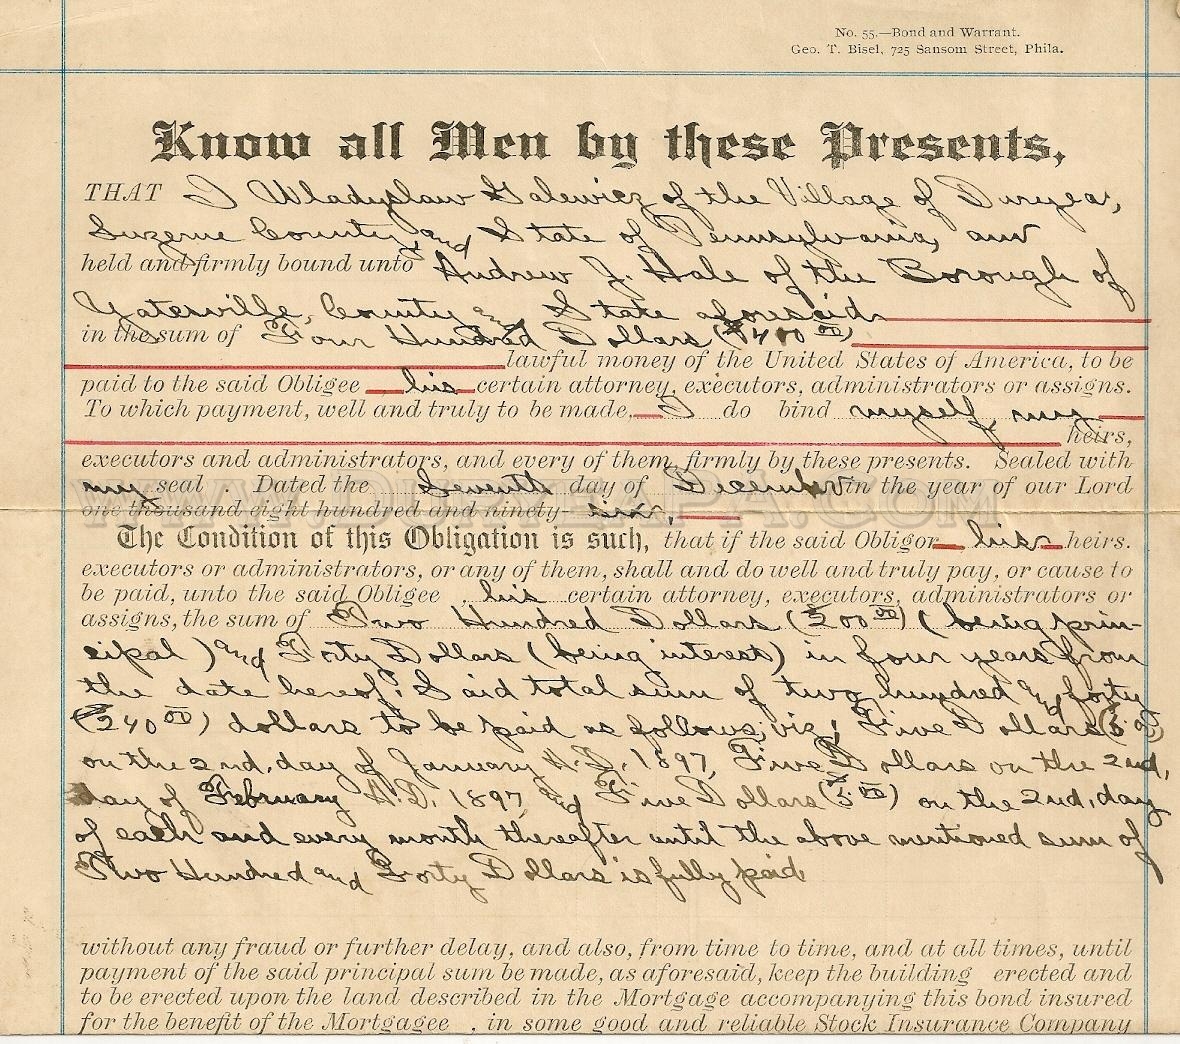 No. 55.—Bond and Warrant.
Geo. T. Bisel, 725 Sansom Street, Phila.
Know all Men by these Presents,
THAT I Wladyslaw Galewicz of the Village of Duryea,
Luzerne County, and State of Pennsylvania, am
held and firmly bound unto Andrew J. Hale of the Borough of
Yatesville, County and State aforesaid
in the sum of Four Hundred Dollars ($400 00)
lawful money of the United States of America, to be
paid to the said Obligee his certain attorney, executors, administrators or assigns.
To which payment, well and truly to be made, I do bind myself, my
heirs,
executors and administrators, and every of them, firmly by these presents. Sealed with
my seal . Dated the Seventh day of December in the year of our Lord
one thousand eight hundred and ninety- six,
WWW.DURYEAPA.COM
The Condition of this Obligation is such, that if the said Obligor his heirs.
executors or administrators, or any of them, shall and do well and truly pay, or cause to
be paid, unto the said Obligee , his certain attorney, executors, administrators or
assigns, the sum of Two Hundred Dollars ($200 00) (being prin-
cipal) and Forty Dollars (being interest) in four years from
the date hereof; Said total sum of two hundred and forty
($240 00) dollars to be paid as follows, viz; Five Dollars ($5.00)
on the 2nd, day of January A.D. 1897, Five Dollars on the 2nd,
day of February A.D. 1897, and Five Dollars ($5 00) on the 2nd, day
of each and every month thereafter until the above mentioned sum of
Two Hundred and Forty Dollars is fully paid
without any fraud or further delay, and also, from time to time, and at all times, until
payment of the said principal sum be made, as aforesaid, keep the building erected and
to be erected upon the land described in the Mortgage accompanying this bond insured
for the benefit of the Mortgagee , in some good and reliable Stock Insurance Company